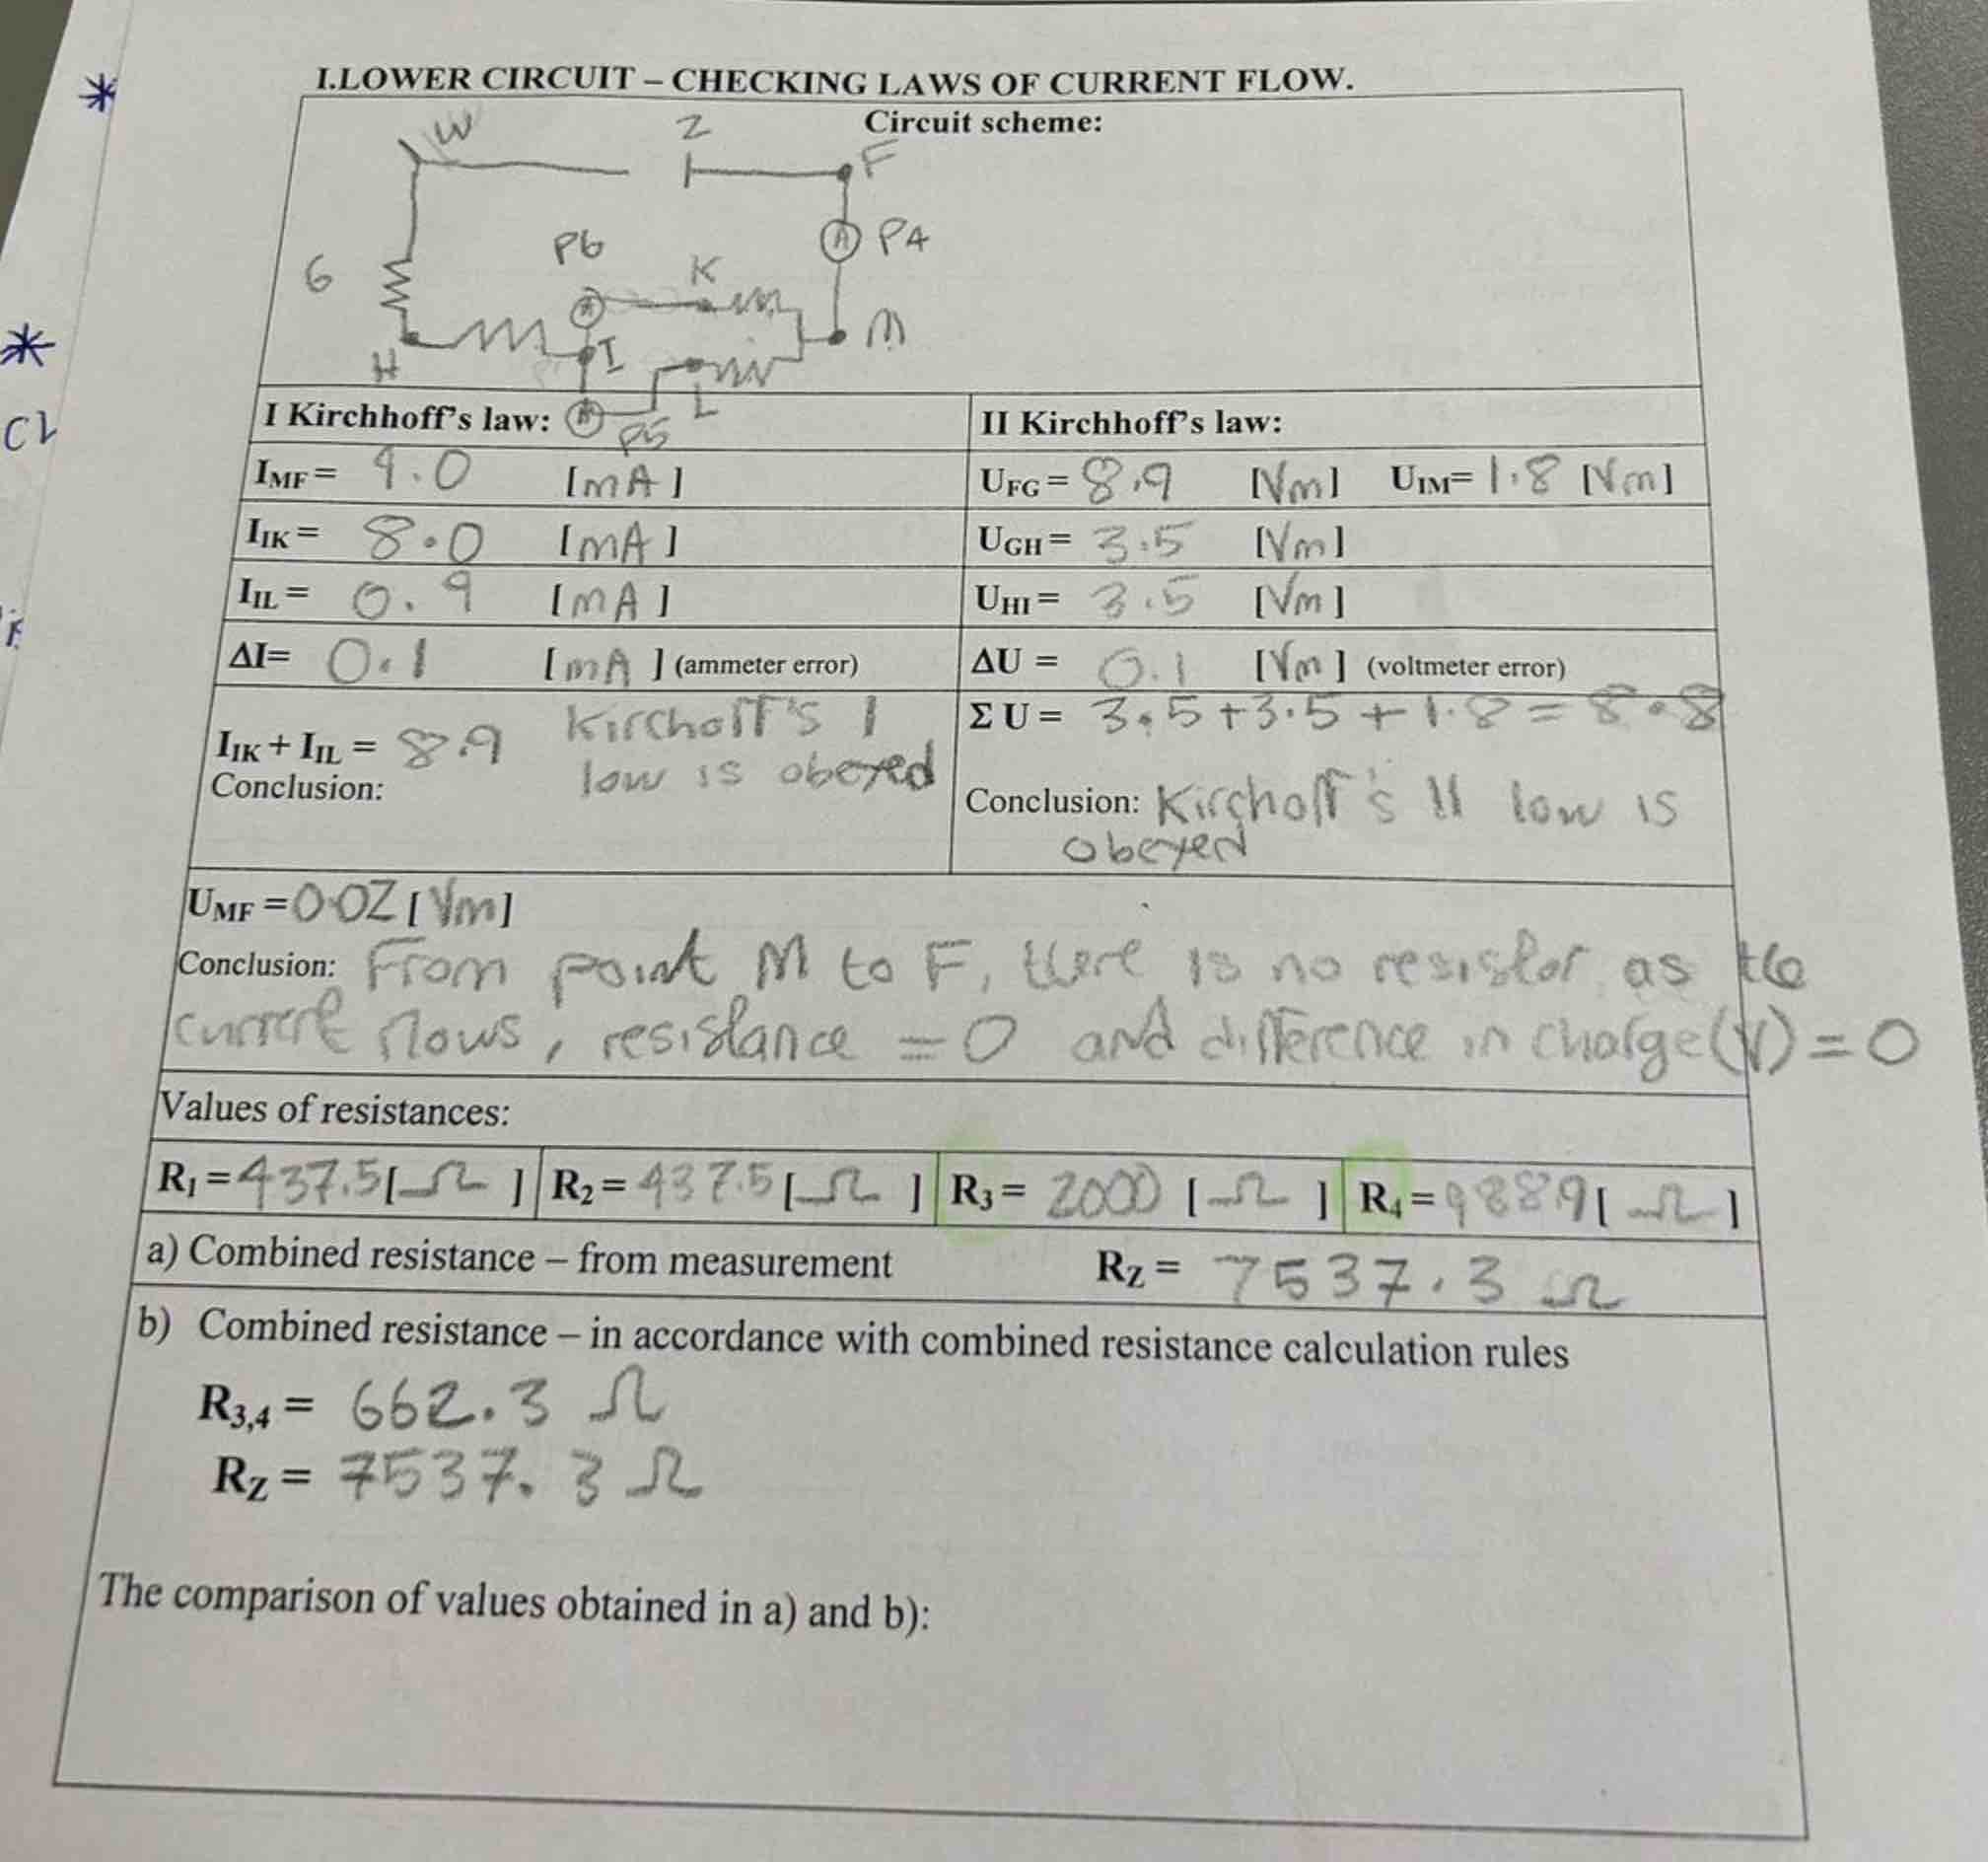 I.LOWER CIRCUIT – CHECKING LAWS OF CURRENT FLOW.
*
Circuit scheme:
W Z F
P6 K P4
A
6
M
*
H I
L
I Kirchhoff's law: P5 II Kirchhoff's law:
I_MF = 9.0 [mA] U_FG = 8.9 [Vm] U_IM= 1.8 [Vm]
I_IK = 8.0 [mA] U_GH = 3.5 [Vm]
I_IL = 0.9 [mA] U_HI = 3.5 [Vm]
ΔI= 0.1 [mA] (ammeter error) ΔU = 0.1 [Vm] (voltmeter error)
Kirchoff's I
low is obeyed
I_IK + I_IL = 8.9
Conclusion:
Σ U = 3.5+3.5+1.8=8.8
Conclusion: Kirchoff's II low is
obeyed
U_MF = 0.02 [Vm]
Conclusion: From point M to F, there is no resistor, as the
current flows, resistance = 0 and difference in charge(V)=0
Values of resistances:
R₁ = 437.5[Ω] R₂ = 437.5[Ω] R₃ = 2000 [Ω] R₄ = 9889[Ω]
a) Combined resistance – from measurement R_Z = 7537.3 Ω
b) Combined resistance – in accordance with combined resistance calculation rules
R₃,₄ = 662.3 Ω
R_Z = 7537.3 Ω
The comparison of values obtained in a) and b):